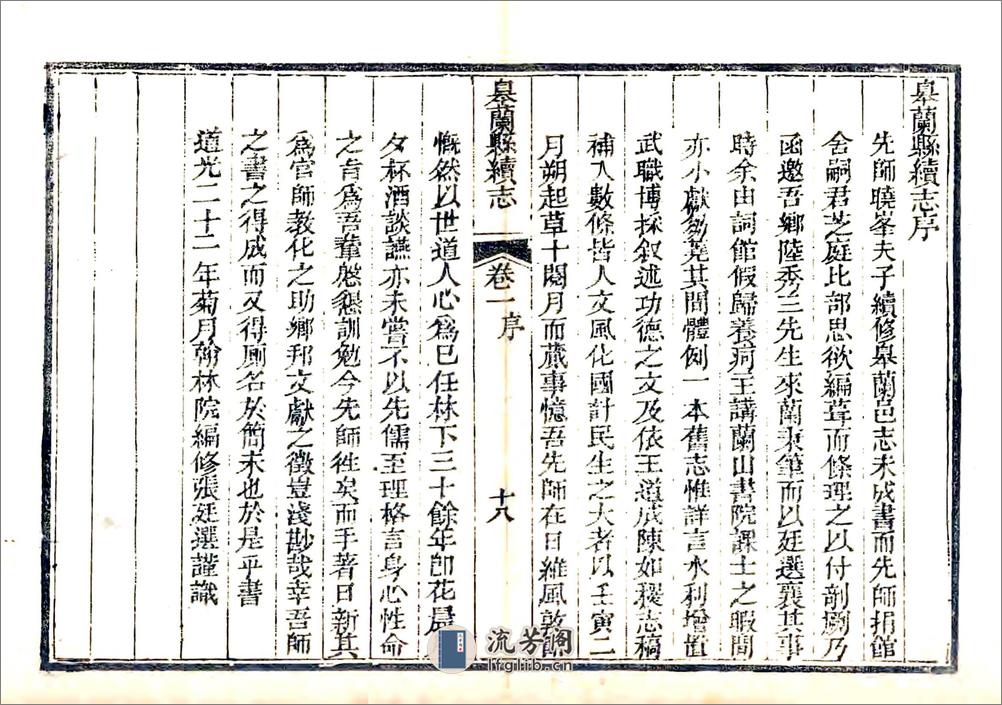 臯蘭縣續志序
先師曉峯夫子續修臯蘭邑志未成書而先師捐館
舍嗣君芝庭比部思欲編葺而條理之以付剞劂乃
函邀吾鄉陸秀三先生來蘭秉筆而以廷選襄其事
時余由詞館假歸養疴主講蘭山書院課士之暇間
亦小獻芻蕘其間體例一本舊志惟詳言水利增置
武職博採叙述功德之文及依王道成陳如稷志稿
補入數條皆人文風化國計民生之大者以壬寅二
月朔起草十閱月而蕆事憶吾先師在日維風敦
臯蘭縣續志
卷一 序
十八
慨然以世道人心爲已任林下三十餘年卽花晨
夕杯酒談讌亦未嘗不以先儒至理格言身心性命
之旨爲吾輩懇懇訓勉今先師徃矣而手著日新其
爲官師教化之助鄉邦文獻之徵豈淺尠哉幸吾師
之書之得成而又得廁名於簡末也於是乎書
道光二十二年菊月翰林院編修張廷選謹識
流芳阁
lfglib.cn